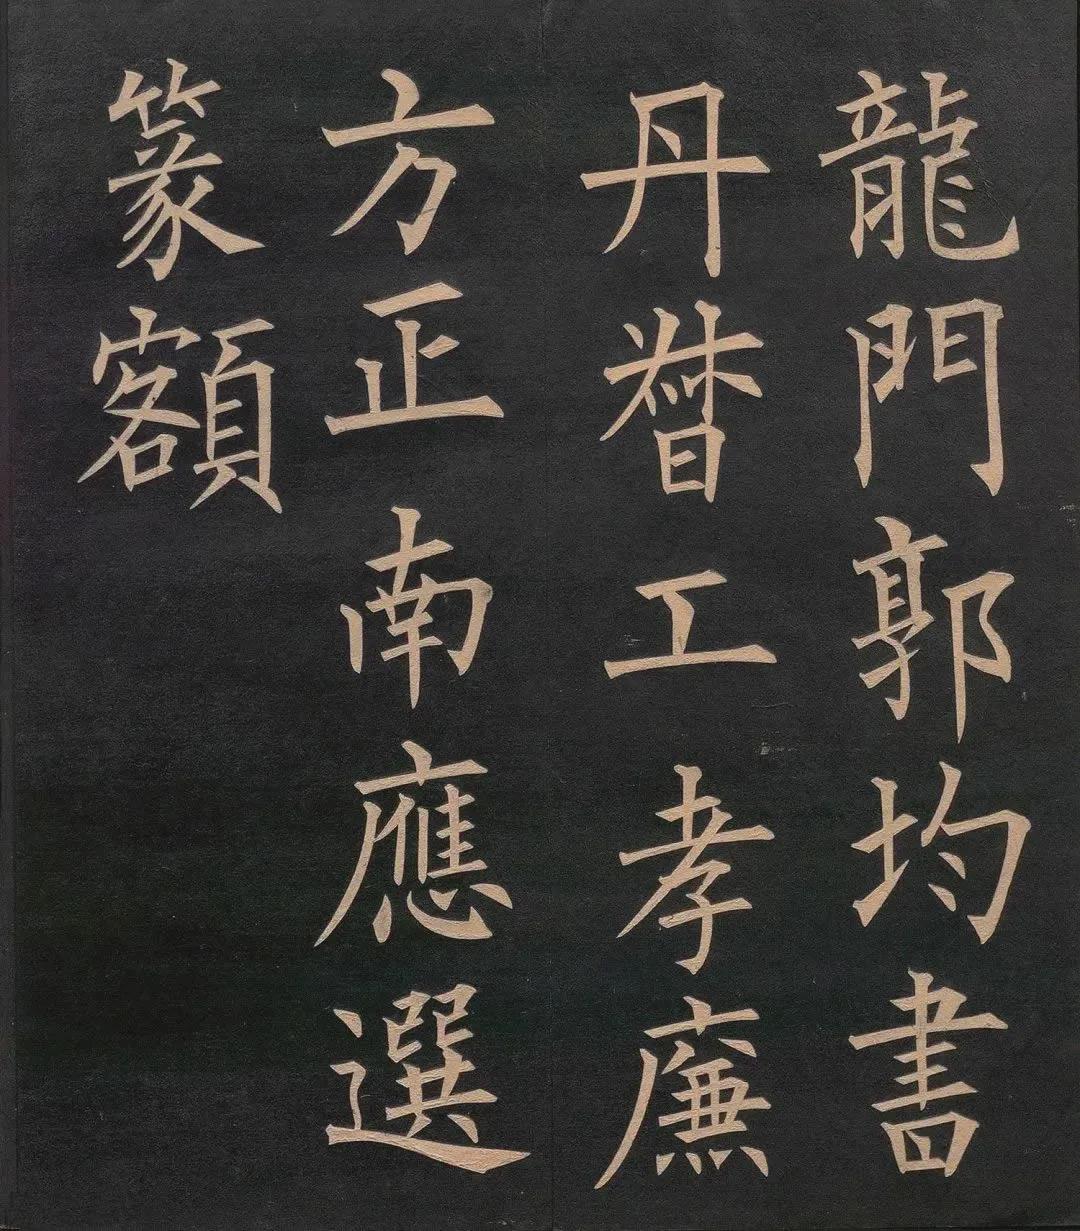 龍門郭均書
丹暨工孝廉
方正南應選
篆額